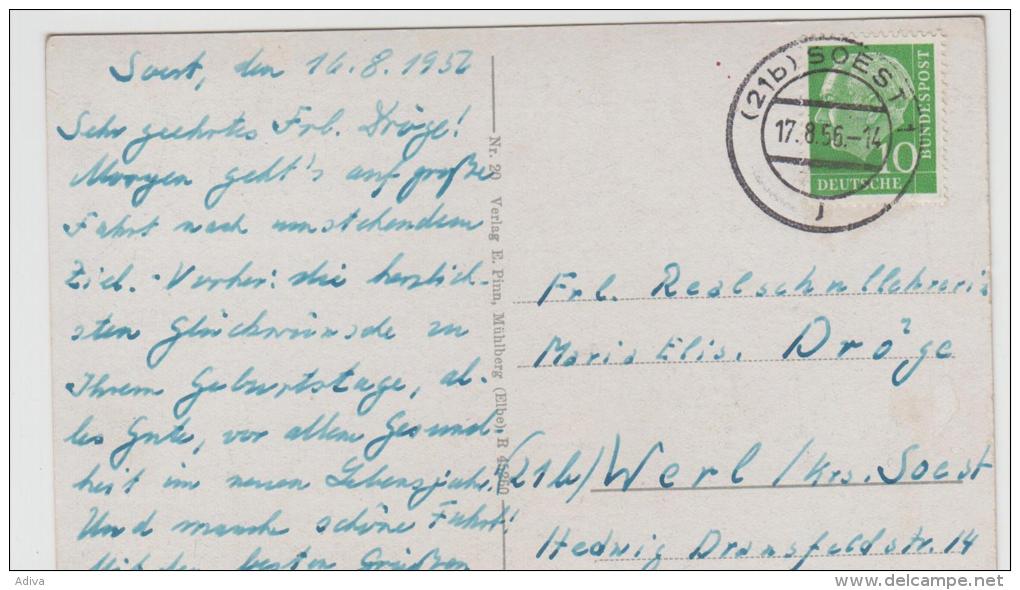 Soest, den 16.8.1956
Sehr geehrtes Frl. Dröge!
Morgen geht's auf große
Fahrt nach umstehendem
Ziel. - Vorher: die herzlich-
sten Glückwünsche zu
Ihrem Geburtstage, al-
les Gute, vor allem Gesund-
heit im neuen Lebensjahr.
Und manche schöne Fahrt!
Mit den besten Grüßen
Nr. 20 Verlag E. Pinn, Mühlberg (Elbe) R
(21b) SOEST 1
17.8.56.-14
BUNDESPOST
10
DEUTSCHE
Frl. Realschullehrerin
Maria Elis. Dröge
(21b) Werl / Krs. Soest
Hedwig Dransfeldstr. 14
Adiva
delcampe.net